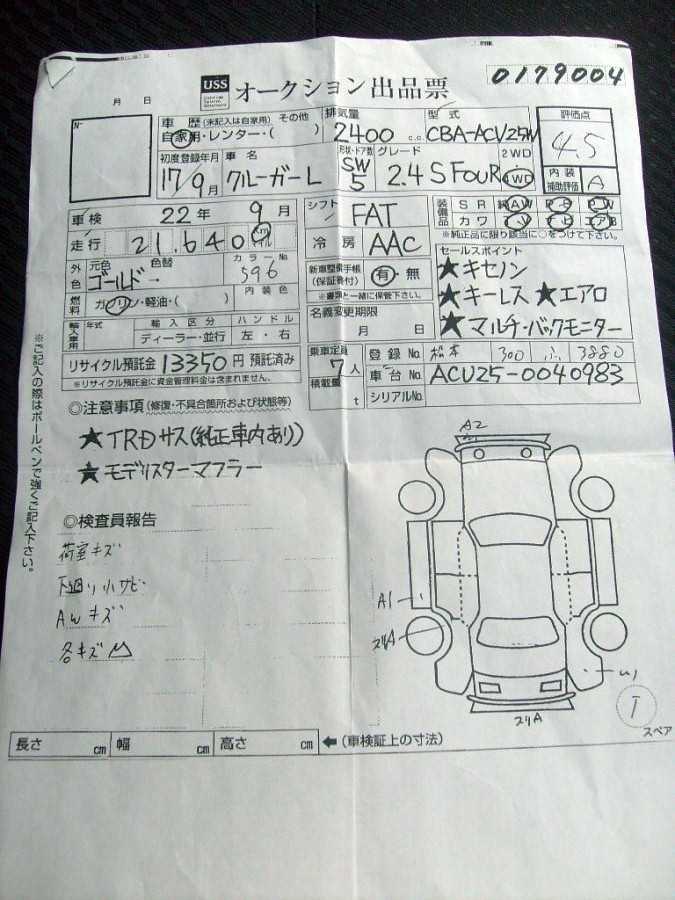 USS オークション出品票 0179004
月 日
車歴 (未記入は自家用) その他
自家用・レンター・( )
排気量 2400 c.c. 型式 CBA-ACV25W
評価点 4.5
初度登録年月 17/9月 車名 クルーガーL 形状・ドア数 SW 5 グレード 2.4 S FouR 2WD 4WD
内装補助評価 A
車検 22年 9月 シフト FAT
装備品 S R 純AW P S P W
カワ エアB
※純正品に限り該当に○をつけて下さい。
走行 21,640 Km マイル 冷房 AAC
外色 元色 色替 ゴールド カラーNo 596
新車整備手帳 (保証書付) 有・無
※書類と一緒に保管下さい。
セールスポイント
★キセノン
★キーレス ★エアロ
★マルチ・バックモニター
燃料 ガソリン・軽油・( ) 内装色
名義変更期限 月 日
輸入車用 年式 輸入区分 ハンドル
ディーラー・並行 左・右
リサイクル預託金 13350 円 預託済み
※リサイクル預託金に資金管理料金は含まれません。
乗車定員 7人 登録No. 松本 300 ふ 3880
積載量 t 車台No. ACU25-0040983
シリアルNo.
◎注意事項 (修復・不具合箇所および状態等)
★TRDサス(純正車内あり)
★モデリスターマフラー
◎検査員報告
荷室キズ
下廻り小サビ
AWキズ
各キズ凹
A2
A1
スリA
スリA
U1
T
スペア
長さ cm 幅 cm 高さ cm ←(車検証上の寸法)
※ご記入の際はボールペンで強くご記入下さい。